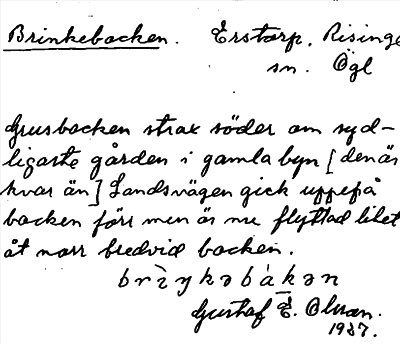 Brinkebacken. Erstorp, Risinge
sn. Ögl
Grusbacken strax söder om syd-
ligaste gården i gamla byn [den är
kvar än] Landsvägen gick uppepå
backen förr men är nu flyttad litet
åt norr bredvid backen.
Gustaf E. Olsson.
1937.